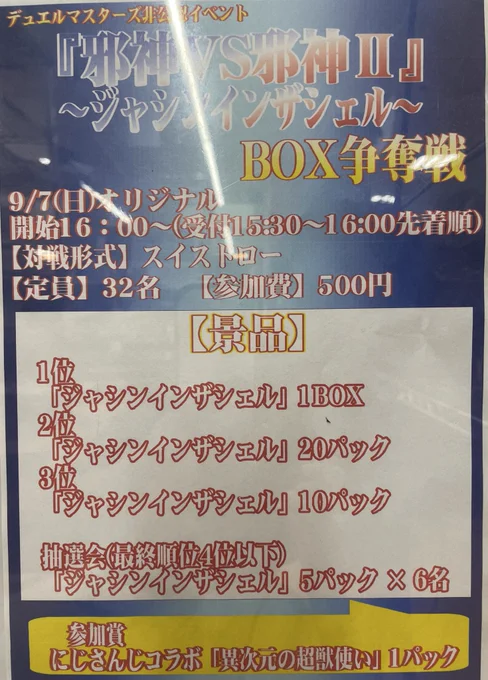 デュエルマスターズ非公認イベント
『邪神VS邪神Ⅱ』
～ジャシンインザシェル～
BOX争奪戦
9/7(日)オリジナル
開始16：00～(受付15:30～16:00先着順)
【対戦形式】スイスドロー
【定員】32名 【参加費】500円
【景品】
1位
「ジャシンインザシェル」1BOX
2位
「ジャシンインザシェル」20パック
3位
「ジャシンインザシェル」10パック
抽選会(最終順位4位以下)
「ジャシンインザシェル」5パック × 6名
参加賞
にじさんじコラボ「異次元の超獣使い」1パック